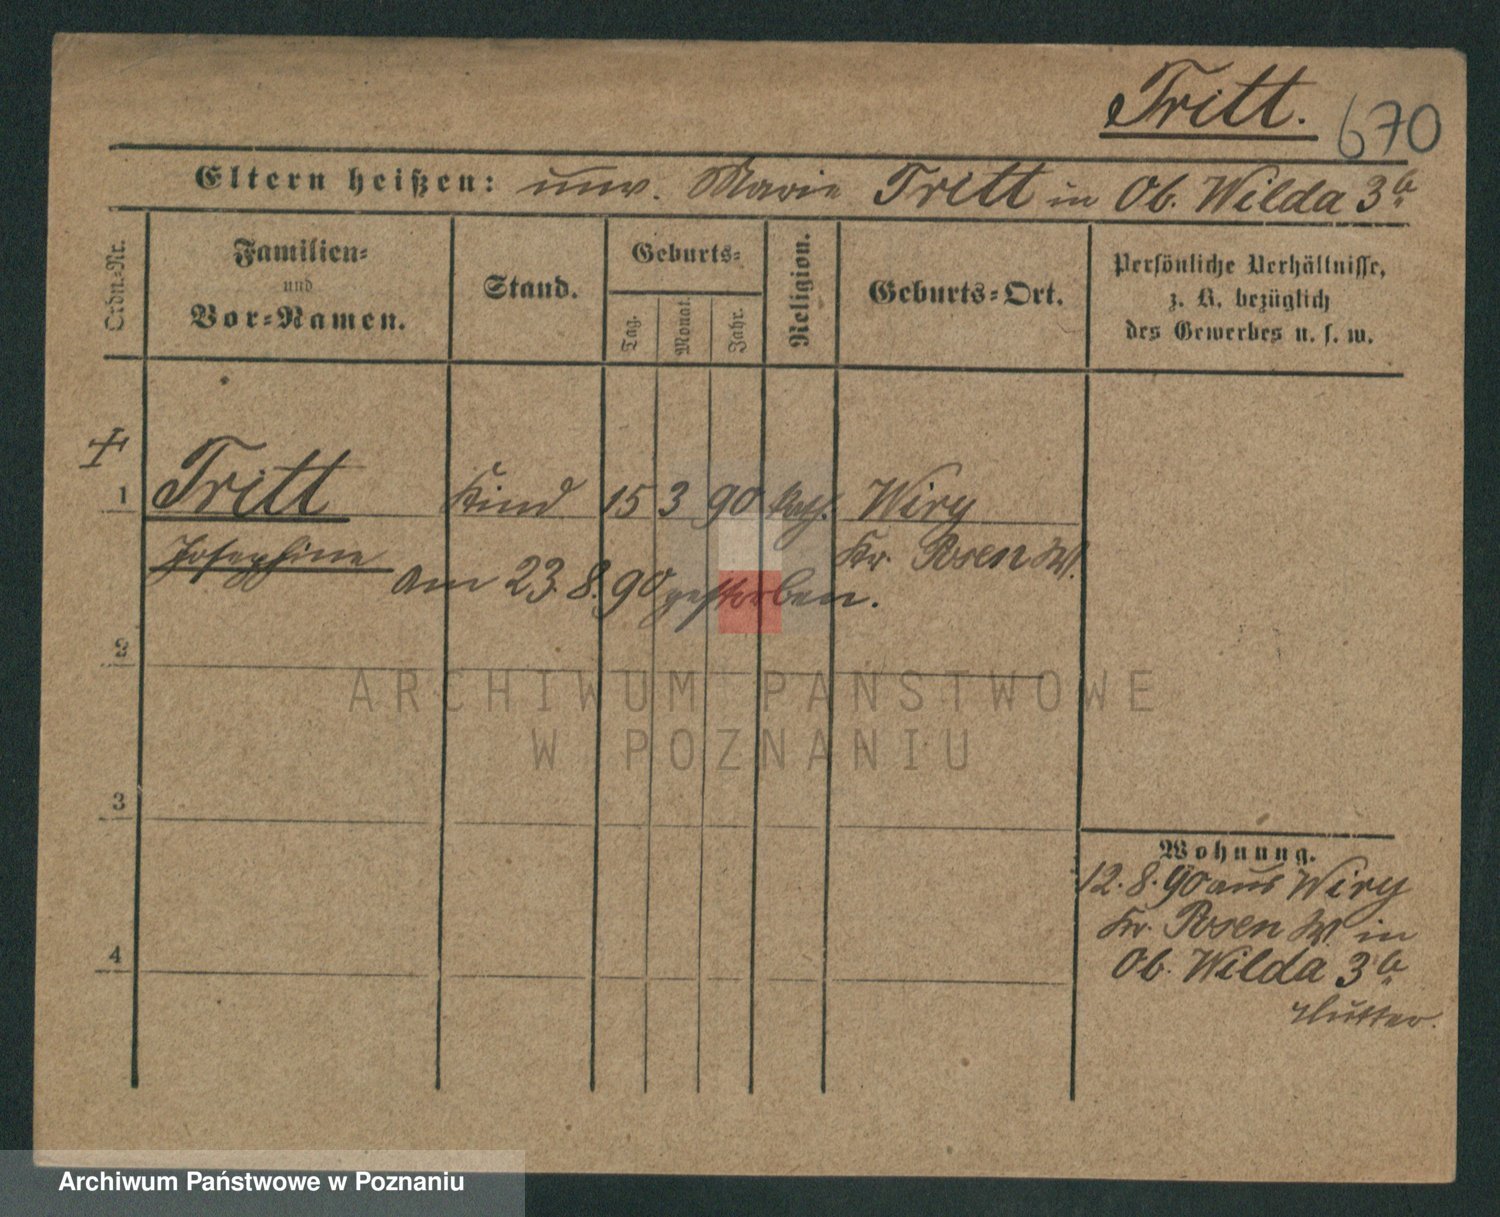 Tritt.
670
Eltern heißen: unv. Marie Tritt in Ob. Wilda 3a
Ordn.-Nr.
Familien-
und
Vor-Namen.
Stand.
Geburts-
Tag.
Monat.
Jahr.
Religion.
Geburts-Ort.
Persönliche Verhältnisse,
z. B. bezüglich
des Gewerbes u. s. w.
1 Tritt Kind 15 3 90 kath. Wiry
Josephine Kr. Posen W.
am 23.8.90 gestorben.
2
3
4
Wohnung.
12.8.90 aus Wiry
Kr. Posen W. in
Ob. Wilda 3a
Mutter.
ARCHIWUM PAŃSTWOWE
W POZNANIU
Archiwum Państwowe w Poznaniu